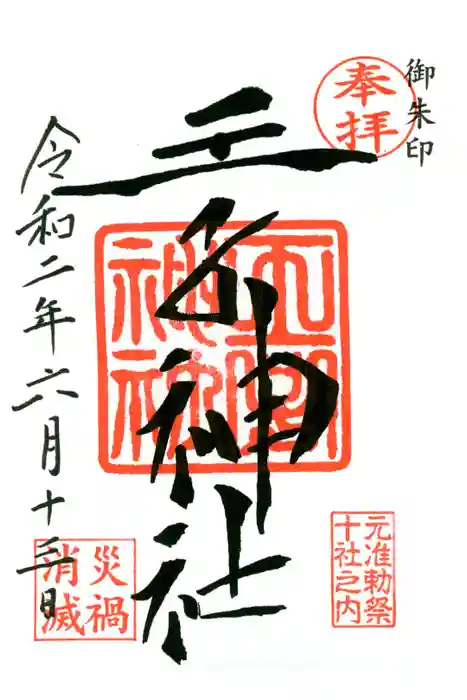 御朱印
奉拝
王子神社
王子神社
元准勅祭
十社之内
令和二年六月十三日
災禍
消滅